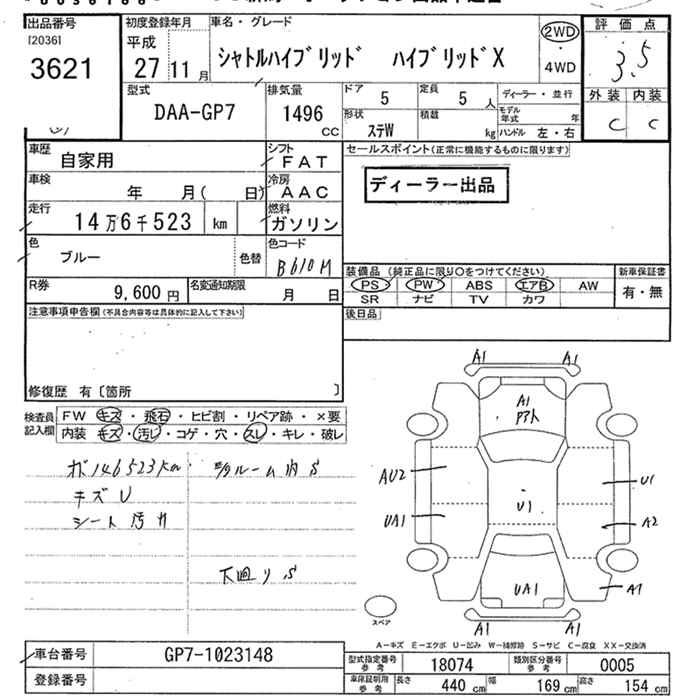 出品番号 初度登録年月 車名・グレード 評価点
[2036]
3621
平成
27 11月
シャトルハイブリッド ハイブリッドX
2WD
・
4WD
3.5
外装 内装
C C
型式
DAA-GP7
排気量
1496
CC
ドア 5
定員 5 人
ディーラー・並行
形状 ステW
積載 kg
モデル年式 年
ハンドル 左・右
車歴
自家用
シフト
FAT
セールスポイント(正常に機能するものに限ります)
車検
年 月( 日)
冷房
AAC
ディーラー出品
走行
14万6千523 km
燃料
ガソリン
色
ブルー
色替
色コード
B610M
装備品(純正品に限り○をつけてください) 新車保証書
PS PW ABS エアB AW 有・無
SR ナビ TV カワ
R券 9,600円
名変通知期限 月 日
後日品
注意事項申告欄(不具合内容等は具体的に記入して下さい)
修復歴 有〔箇所 〕
検査員記入欄
FW キズ・飛石・ヒビ割・リペア跡・×要
内装 キズ・汚し・コゲ・穴・スレ・キレ・破レ
146523km
ルーム内 S
キズ U
シート汚れ
下廻り S
A1 A1
A1
AU2
UA1
U1
U1
A2
UA1
A1
A1 A1
スペア
A-キズ E-エクボ U-凹み W-補修跡 S-サビ C-腐食 XX-交換済
車台番号 GP7-1023148
登録番号
型式指定番号参考 18074 類別区分番号参考 0005
車庫証明用参考 長さ 440 cm 幅 169 cm 高さ 154 cm